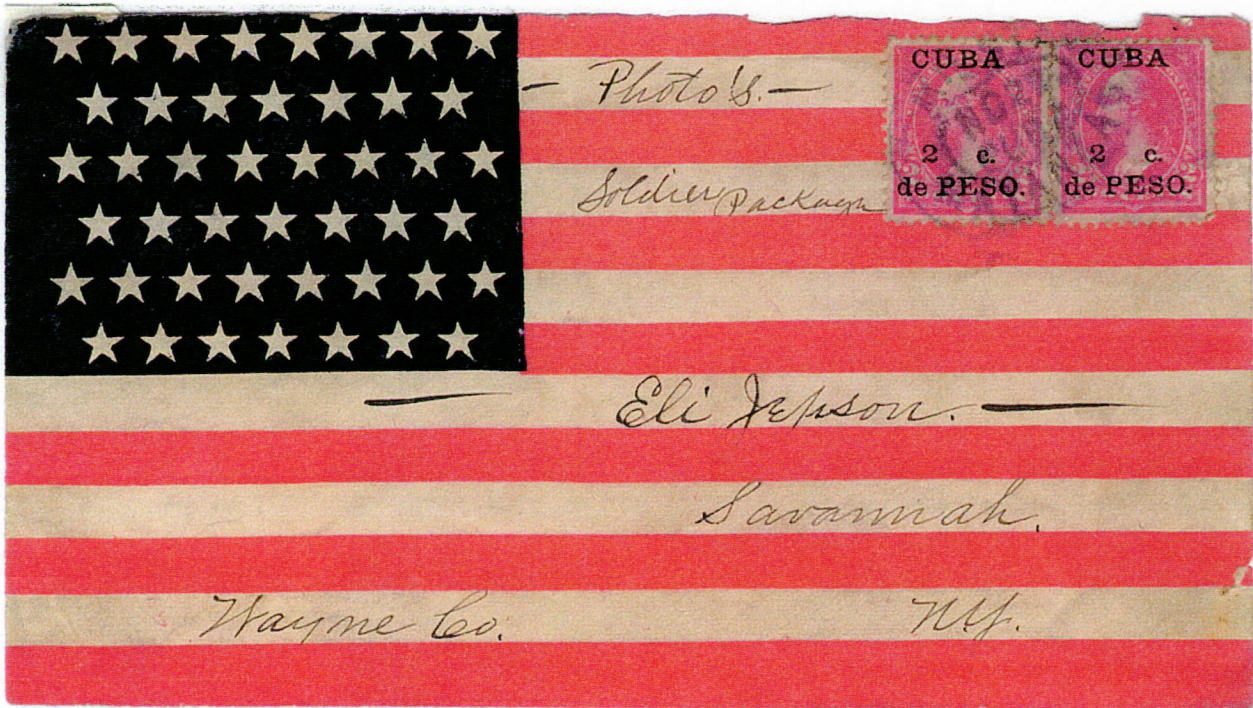 - Photo's. -
Soldier Package
CUBA CUBA
2 c. 2 c.
de PESO. de PESO.
— Eli Jepson. —
Savannah.
Wayne Co. N.Y.